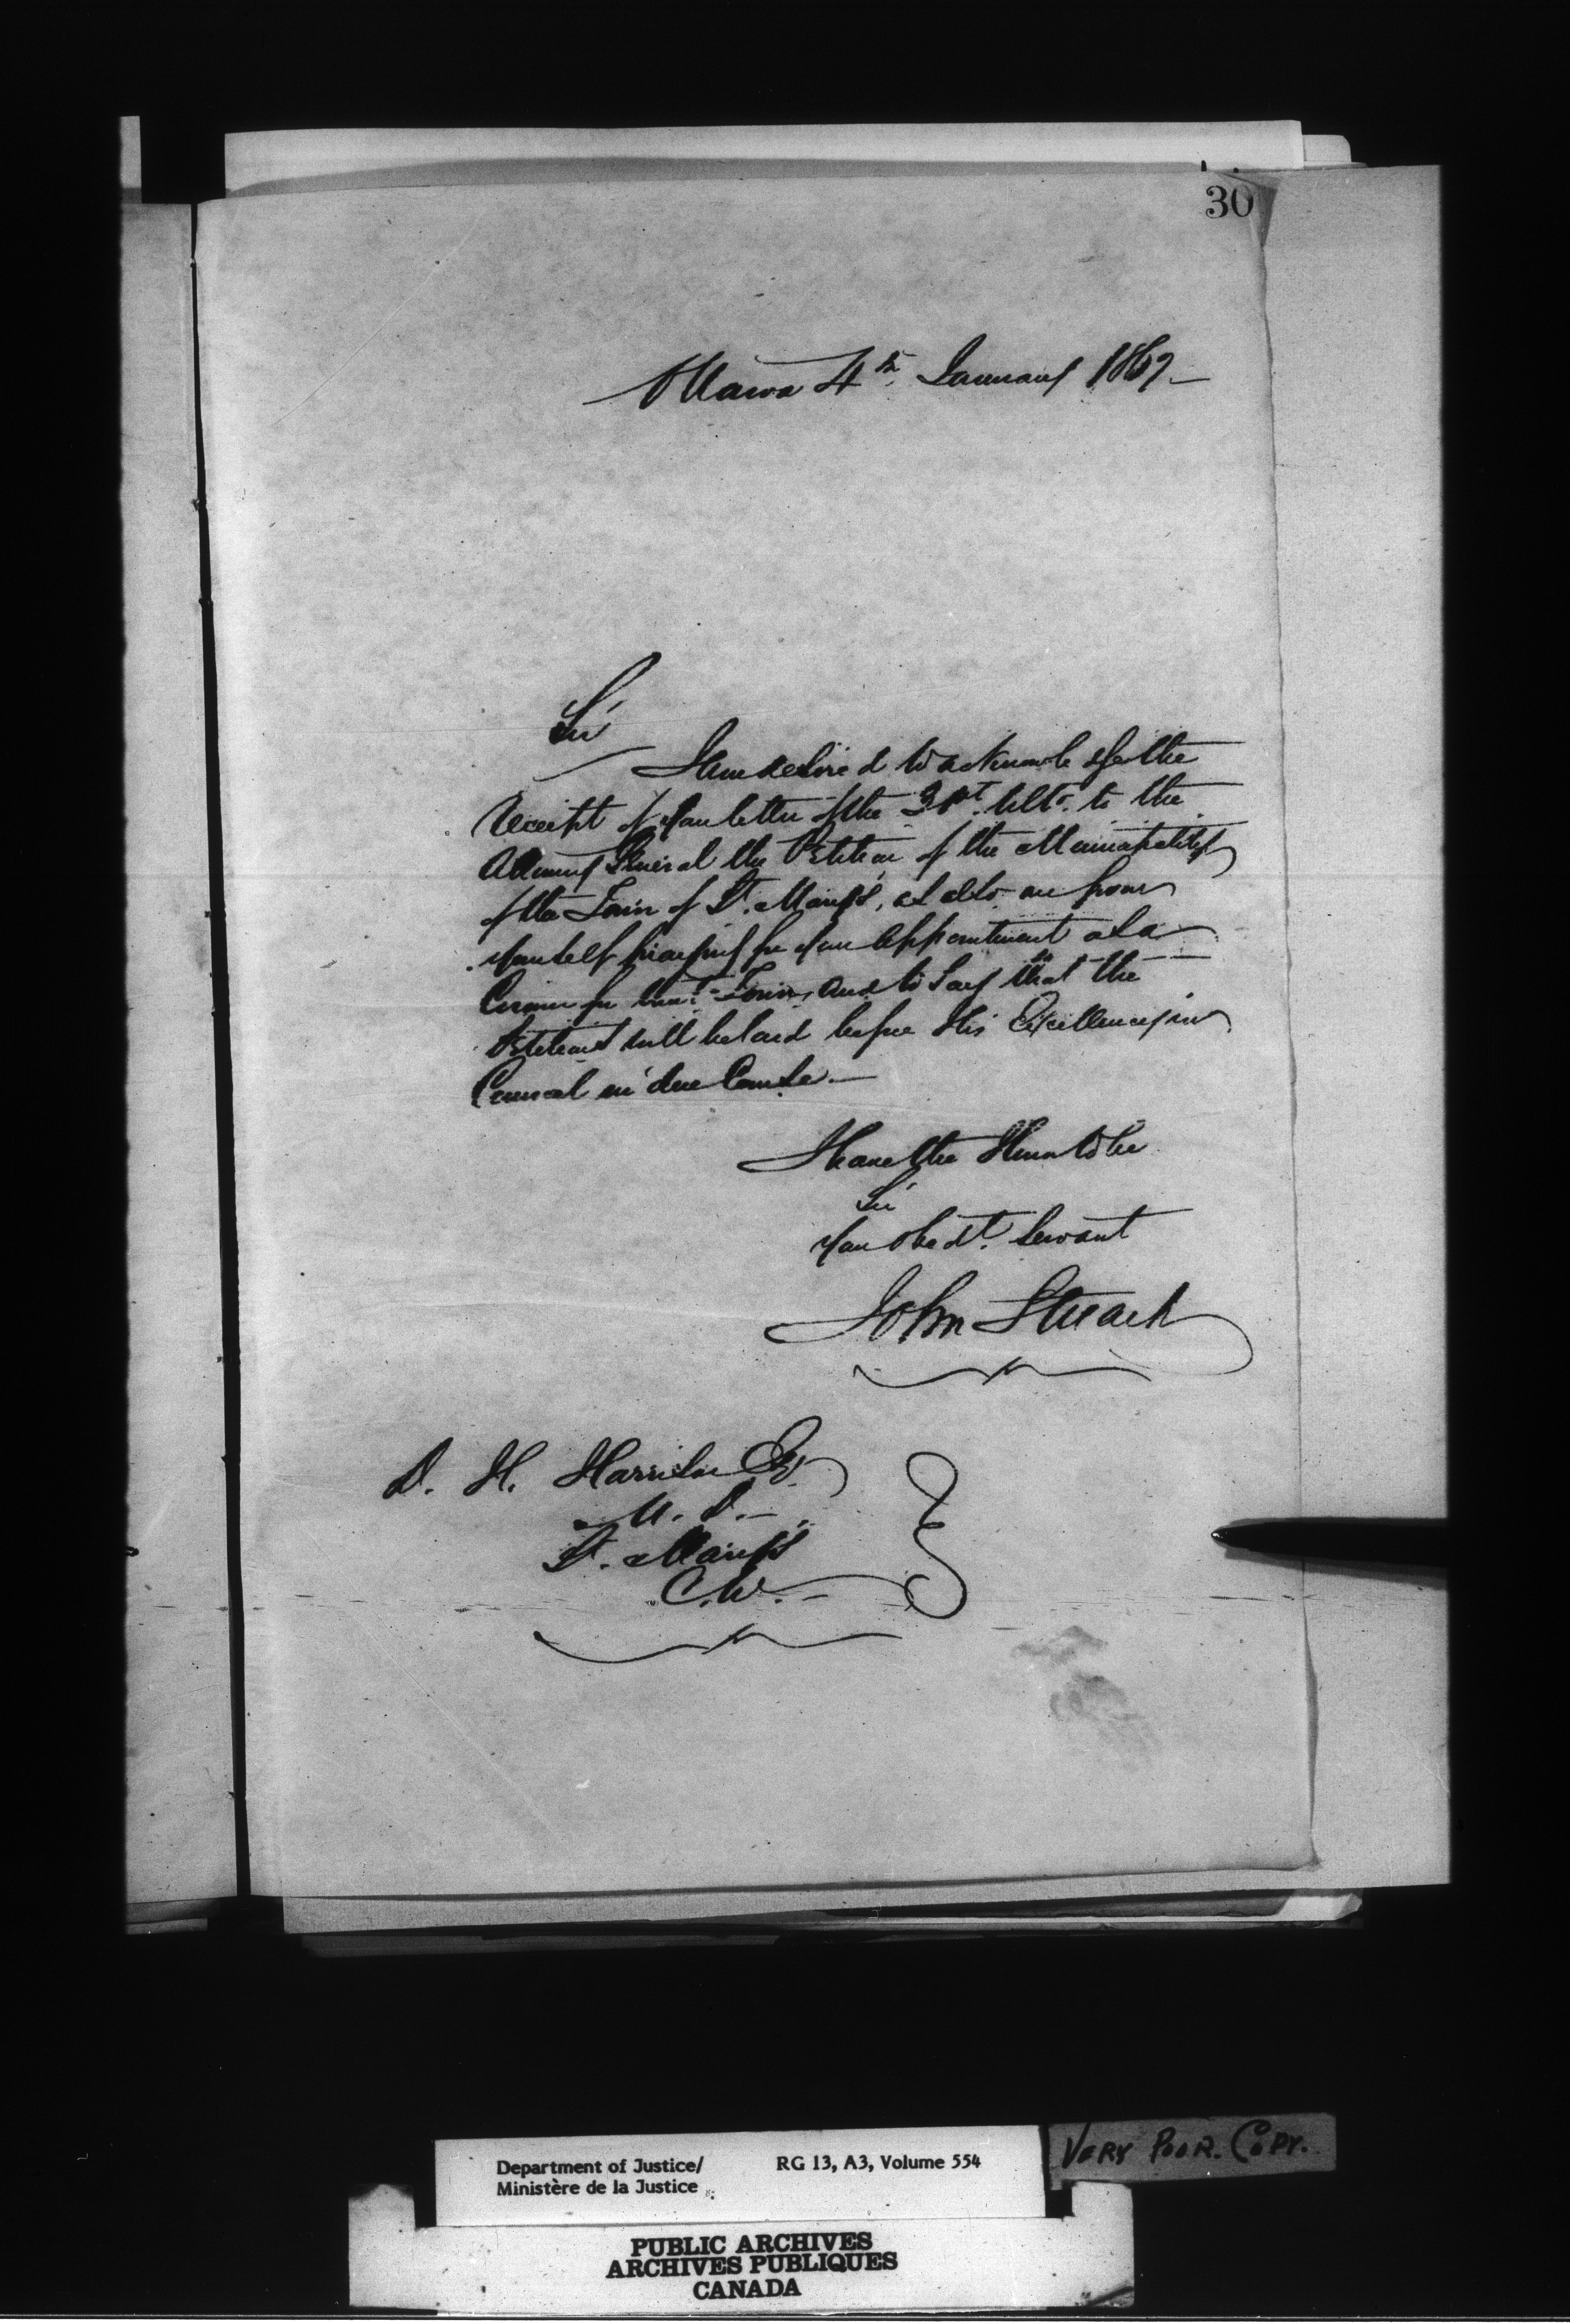 30
Ottawa 4th. January 1867
Sir
I am desired to acknowledge the
Receipt of your letter of the 31st. Ulto. to the
Attorney General the Petition of the Municipality
of the Town of St. Mary's, also one from
yourself praying for your Appointment as a
Coroner for that Town, and to say that the
Petitions will be laid before His Excellency in
Council in due Course.
I have the Honor to be
Sir
Your Obedt. Servant
John Stuart
D. H. Harrison Esq.
M. D.
St. Mary's
C.W.
Department of Justice/ RG 13, A3, Volume 554
Ministère de la Justice
VERY POOR. COPY.
PUBLIC ARCHIVES
ARCHIVES PUBLIQUES
CANADA